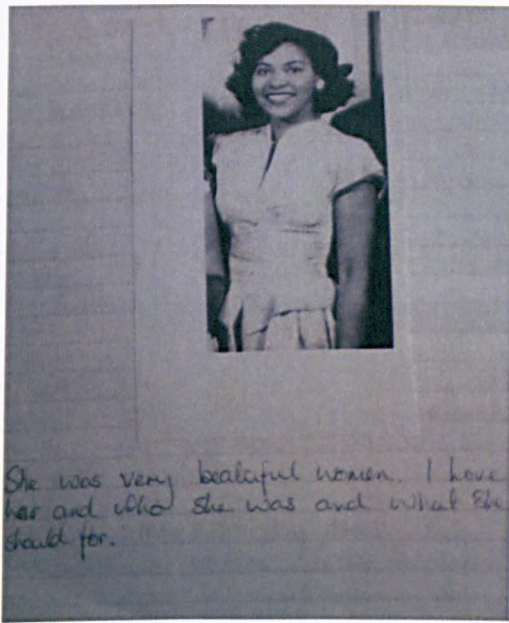 She was very beatciful women. I love
her and who she was and what she
should for.